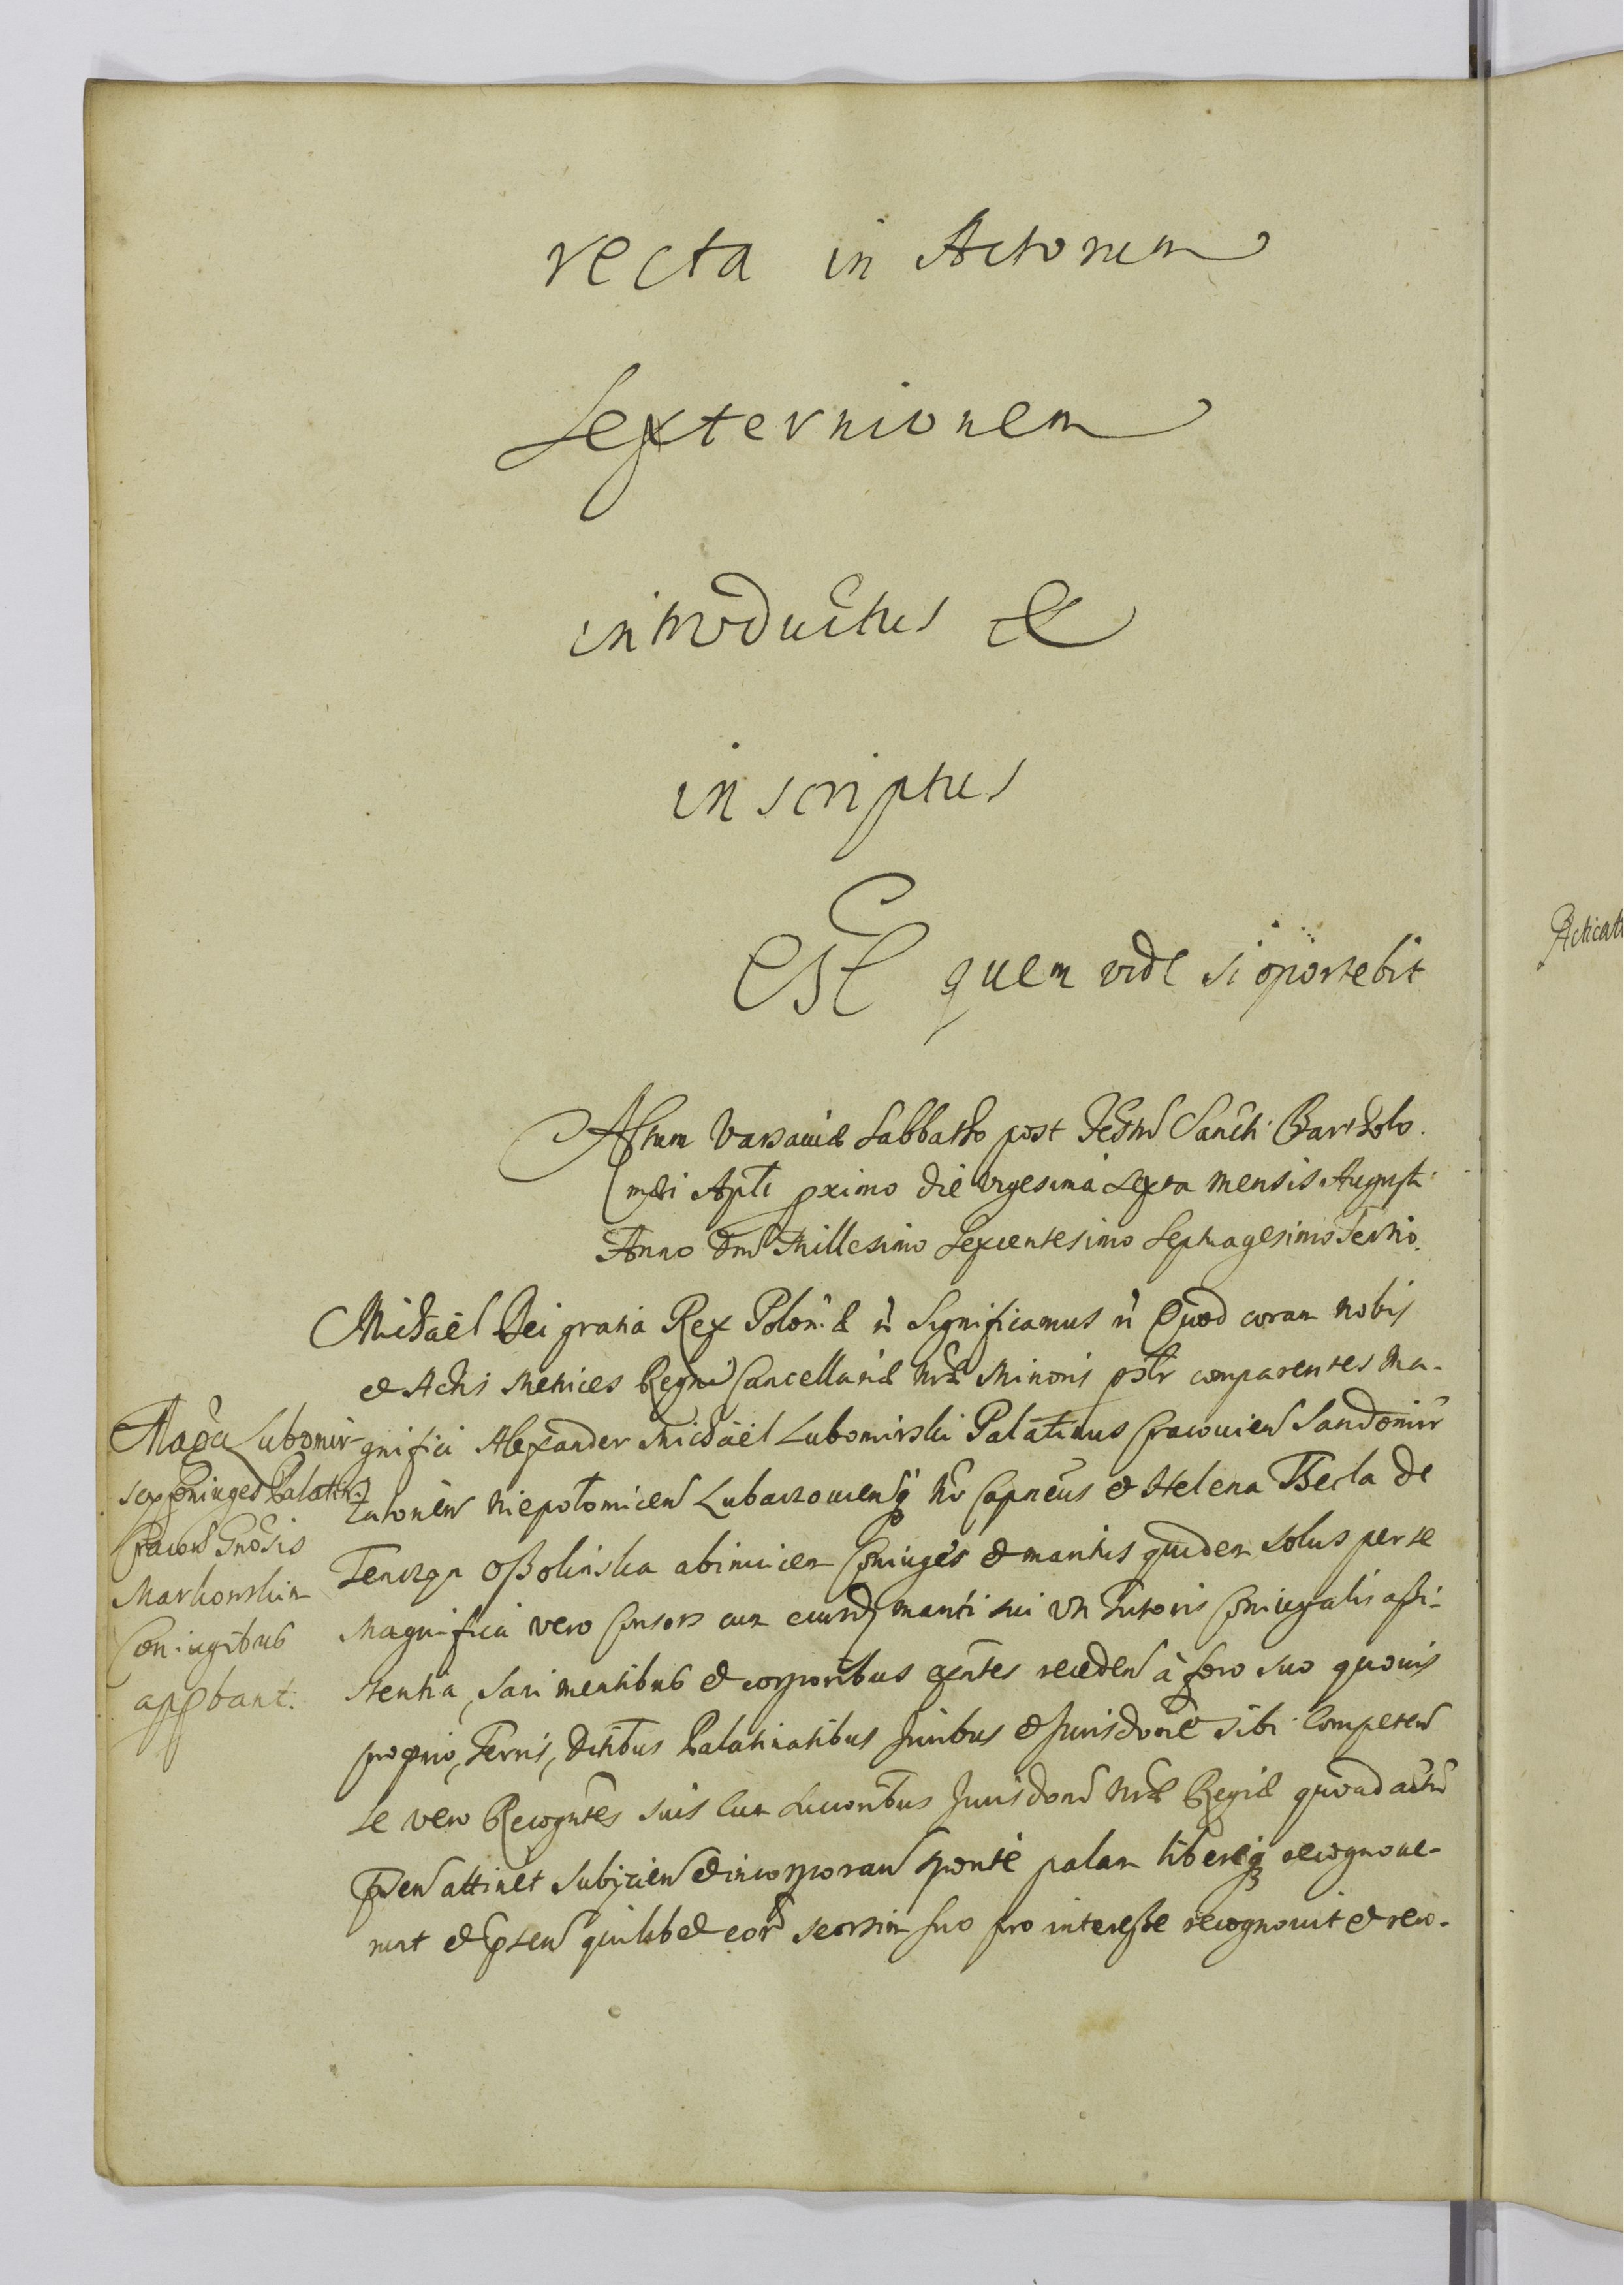 recta in Actorum
Sexternionem
introductus et
inscriptus
Est quem vide si oportebit
Actum Varsaviæ Sabbatho post Festũ Sancti Bartholo-
mæi Apłi proximo die vigesima sexta mensis Augusti
Anno Dni Millesimo Sexcentesimo Septuagesimo Tertio.
Michaël Dei gratia Rex Polon: & Significamus Quod coram nobis
et Actis Metrices Regni Cancellariæ Nræ Minoris psltr comparentes Ma-
gnifici Alexander Michaël Lubomirski Palatinus Cracovien Sandomir
Zatorien Niepołomicen Lubaczoviensq Nr Capneus et Helena Thecla de
Tenczyn Ossolinska abinvicem Coniuges et maritus quidem solus per se
Magnifica vero Consors cum eiusd mariti sui Vti Tutoris Coniugalis assi-
stentia, sani mentibus et corporibus existentes receden à foro suo quovis
proprio, Terris, Distbus Palatinatibus Juribus et Jurisdone sibi competen
se vero Recogntes suis cum succoribus Jurisdoni Nræ Regiæ quoad actũ
pnten attinet subijcien et incorporan sponte palam libereq recognove-
runt et pnten quilibet eorũ seorsim suo pro interesse recognovit et reco-
Magci Lubomir-
scy Coniuges Palatin
Cracov Gnosis
Markowskim
Coniugibus
approbant.
Acticatio